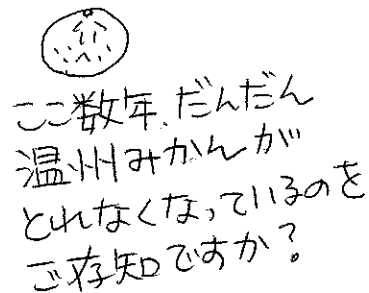 ここ数年、だんだん
温州みかんが
とれなくなっているのを
ご存知ですか？